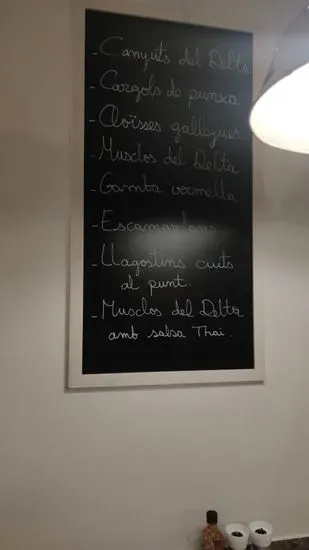 - Canyuts del Delta
- Cargols de punxa
- Cloïsses gallegues
- Musclos del Delta
- Gamba vermella
- Escamarlans
- Llagostins cuits
al punt
- Musclos del Delta
amb salsa Thai.